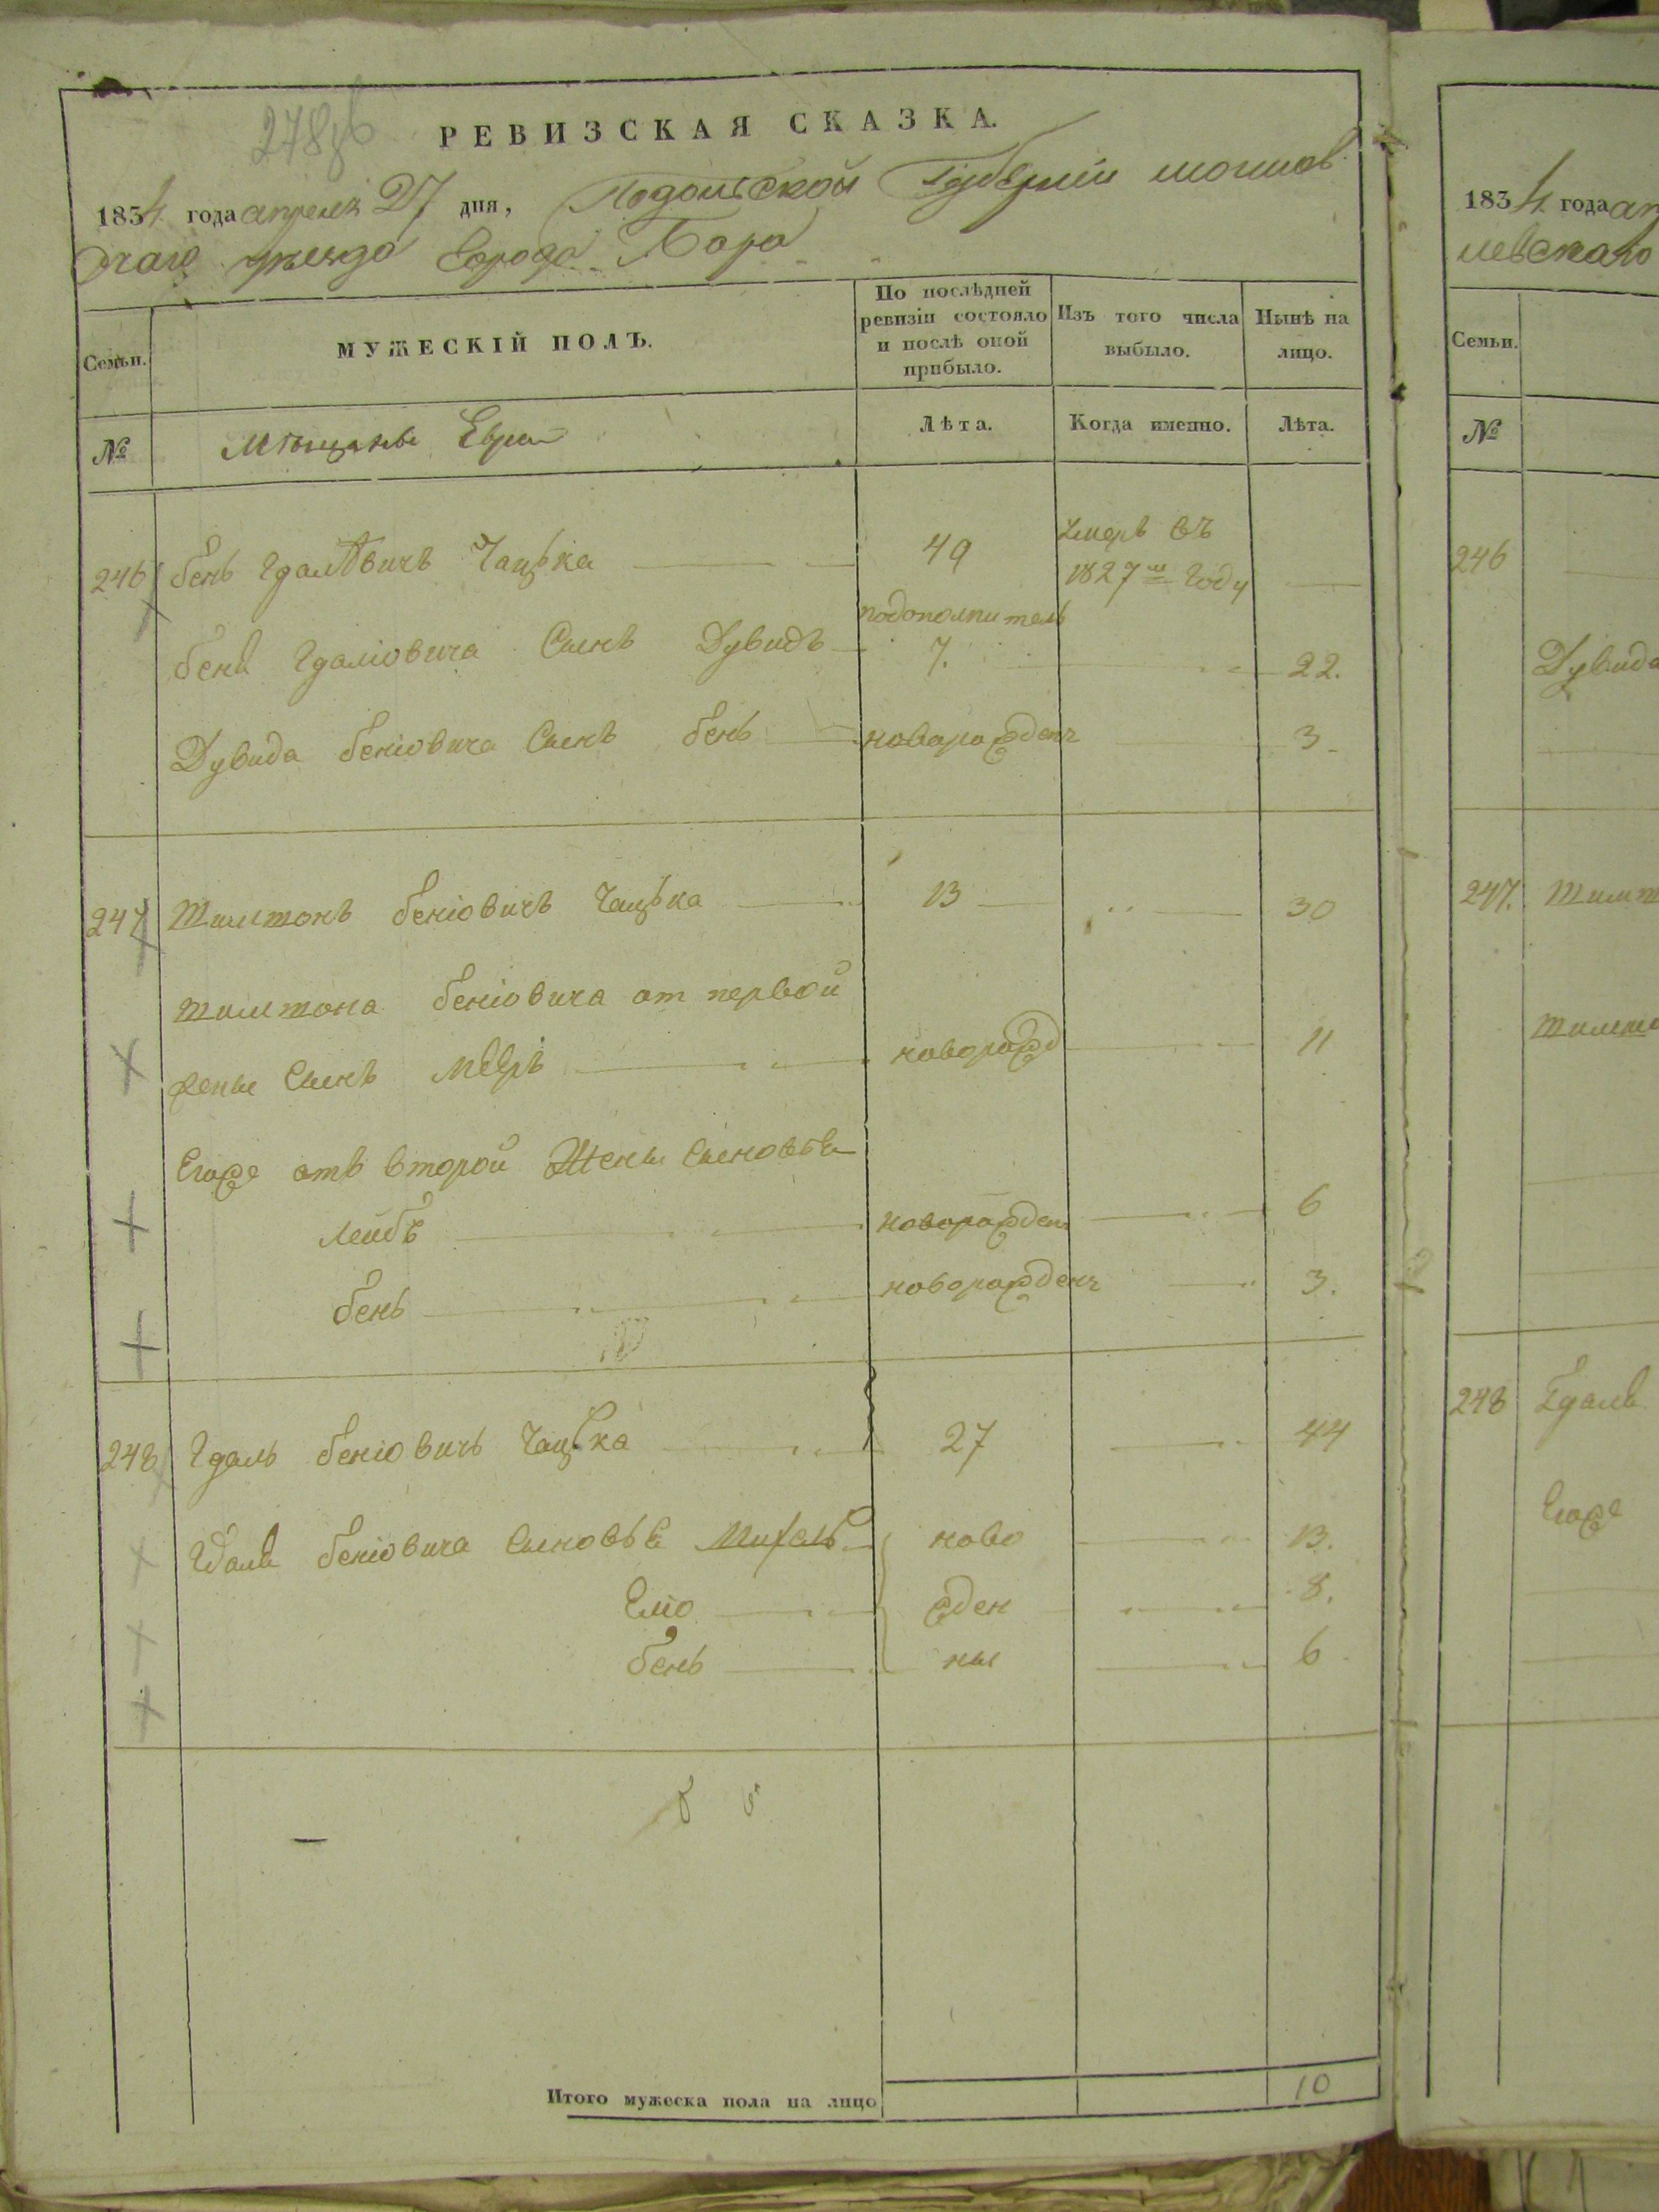 278 об
РЕВИЗСКАЯ СКАЗКА.
1834 года апреля 27 дня, Подольской Губернии могилев
скаго уѣзда Города Бара
Семьи.
МУЖЕСКІЙ ПОЛЪ.
По послѣдней ревизіи состояло и послѣ оной прибыло.
Изъ того числа выбыло.
Нынѣ на лицо.
№
Мѣщане Евреи
Лѣта.
Когда именно.
Лѣта.
246 бень Гдалѣвичъ Чацъка 49 Умеръ въ 1827м Году
бени Гдаліовича Сынъ Дувидъ подополнитель 7. 22.
Дувида беніовича Сынъ бень новорожденъ 3
247 Шимшонъ беніовичъ Чацъка 13 30
шимшона беніовича от первой
жены Сынъ меерь новорожд 11
Егоже отъ второй Жены Сыновья
Лейбъ новорожден 6
бень новорожденъ 3.
248 Гдаль беніовичъ Чацька 27 44
Гдаля беніовича Сыновья Михель ново 13.
Еліо жден 8.
бень ны 6
Итого мужеска пола на лицо 10
1834 года ап
левскаго
Семьи.
№
246
Дувида
247. Шимш
Шимшо
248 Гдаля
Егоже